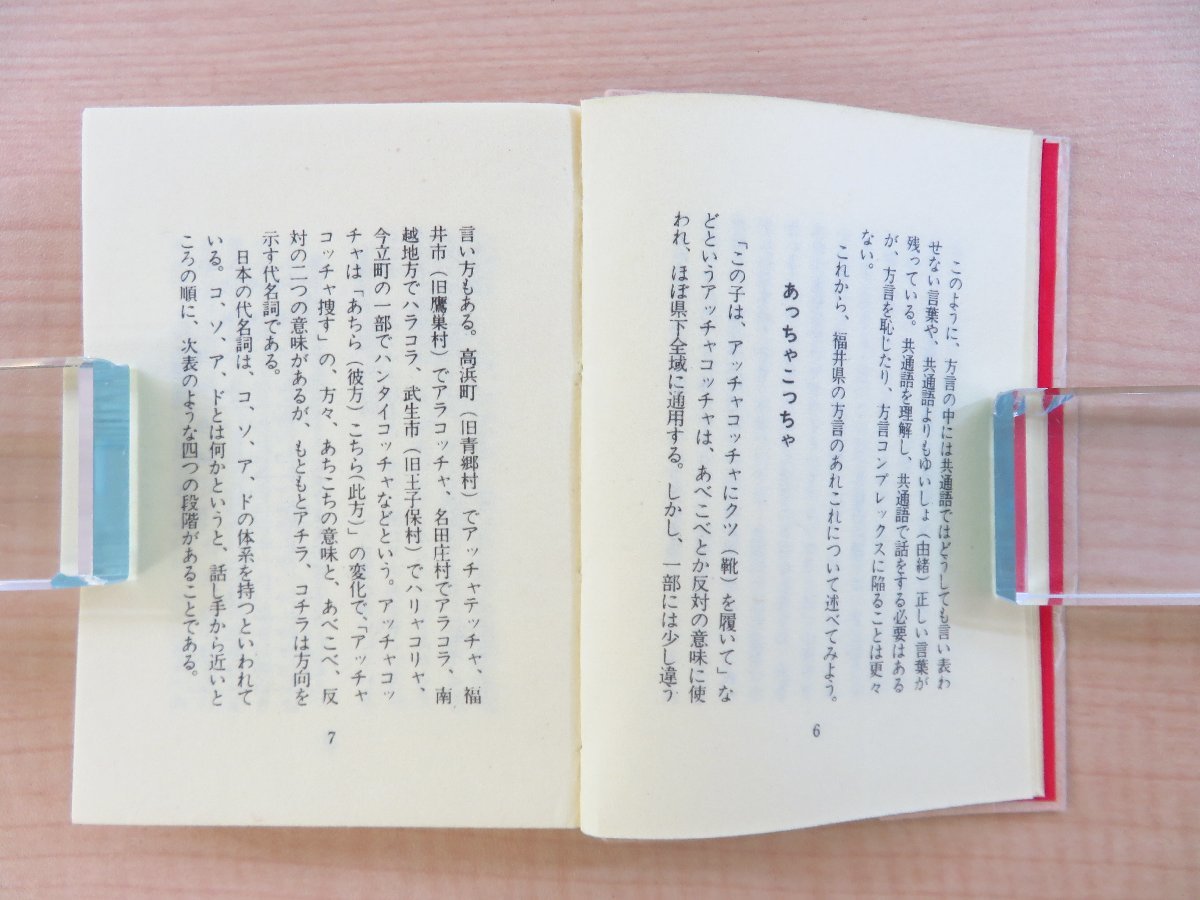 このように、方言の中には共通語ではどうしても言い表わ
せない言葉や、共通語よりもゆいしょ（由緒）正しい言葉が
残っている。共通語を理解し、共通語で話をする必要はある
が、方言を恥じたり、方言コンプレックスに陥ることは更々
ない。
これから、福井県の方言のあれこれについて述べてみよう。
あっちゃこっちゃ
「この子は、アッチャコッチャにクツ（靴）を履いて」な
どというアッチャコッチャは、あべこべとか反対の意味に使
われ、ほぼ県下全域に通用する。しかし、一部には少し違う
6
言い方もある。高浜町（旧青郷村）でアッチャテッチャ、福
井市（旧鷹巣村）でアラコッチャ、名田庄村でアラコラ、南
越地方でハラコラ、武生市（旧王子保村）でハリャコリャ、
今立町の一部でハンタイコッチャなどという。アッチャコッ
チャは「あちら（彼方）こちら（此方）」の変化で、「アッチャ
コッチャ捜す」の、方々、あちこちの意味と、あべこべ、反
対の二つの意味があるが、もともとアチラ、コチラは方向を
示す代名詞である。
日本の代名詞は、コ、ソ、ア、ドの体系を持つといわれて
いる。コ、ソ、ア、ドとは何かというと、話し手から近いと
ころの順に、次表のような四つの段階があることである。
7